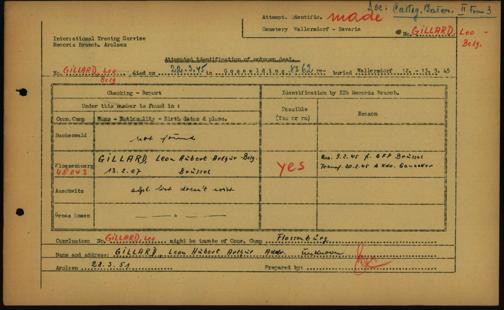 Doc: Carteg. Mater. II Form 3
Attempt. Identific. made
International Tracing Service
Records Branch, Arolsen
Cemetery Wallersdorf - Bavaria
No. GILLARD, Leo - Belg.
Attempted identification of unknown dead.
No. GILLARD, Leo Belg. died on 20.2.45 in buried Wallersdorf
Checking - Report
Identification by ITS Records Branch.
Under this number is found in :
Possible (Yes or no)
Reason
Conc. Camp
Name - Nationality - Birth dates & place.
Buchenwald
not found
Flossenburg 48043
GILLARD, Leon Hubert Arthur - Belg.
13.2.07 Brüssel
yes
3.2.45 f. Brüssel
Transf. 20.2.45 Kdo. Ganacker
Auschwitz
doesn't exist
Gross Rosen
Conclusion No. GILLARD, Leo might be inmate of Conc. Camp Flossenburg
Name and address: GILLARD, Leon Hubert Arthur Addr. Unknown
Arolsen 28.3.51 Prepared by: